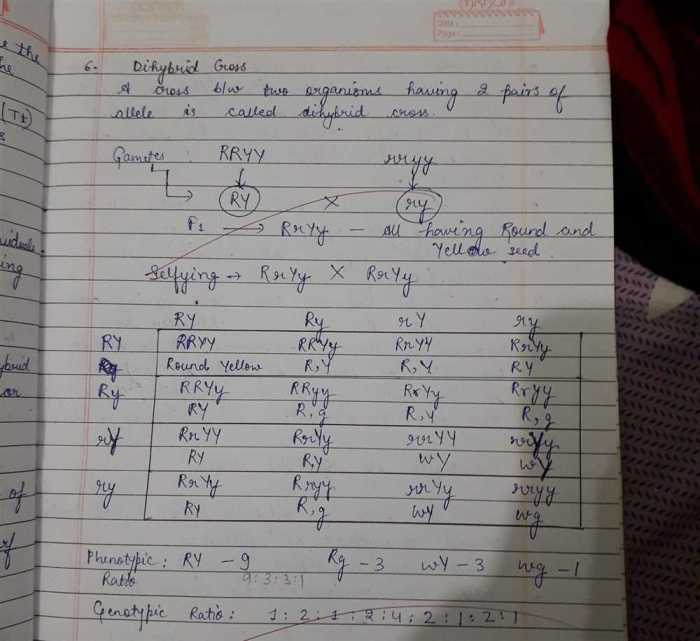 e the
he
(Tt)
s
ing
of
Date:
Page:
6- Dihybrid Cross
A cross b/w two organisms having 2 pairs of
allele is called dihybrid cross.
Gametes: RRYY rryy
RY × ry
F1 → RrYy - All having Round and
Yellow seed.
Selfying → RrYy × RrYy
RY Ry rY ry
RY RRYY RRYy RrYY RrYy
Round Yellow R,Y R,Y RY
Ry RRYy RRyy RrYy Rryy
RY R,g R,Y R,g
rY RrYY RrYy rrYY rrYy
RY R,Y wY wY
ry RrYy Rryy rrYy rryy
RY R,g wY wg
Phenotypic: RY - 9 Rg - 3 wY - 3 wg - 1
Ratio 9:3:3:1
Genotypic Ratio: 1:2:1:2:4:2:1:2:1